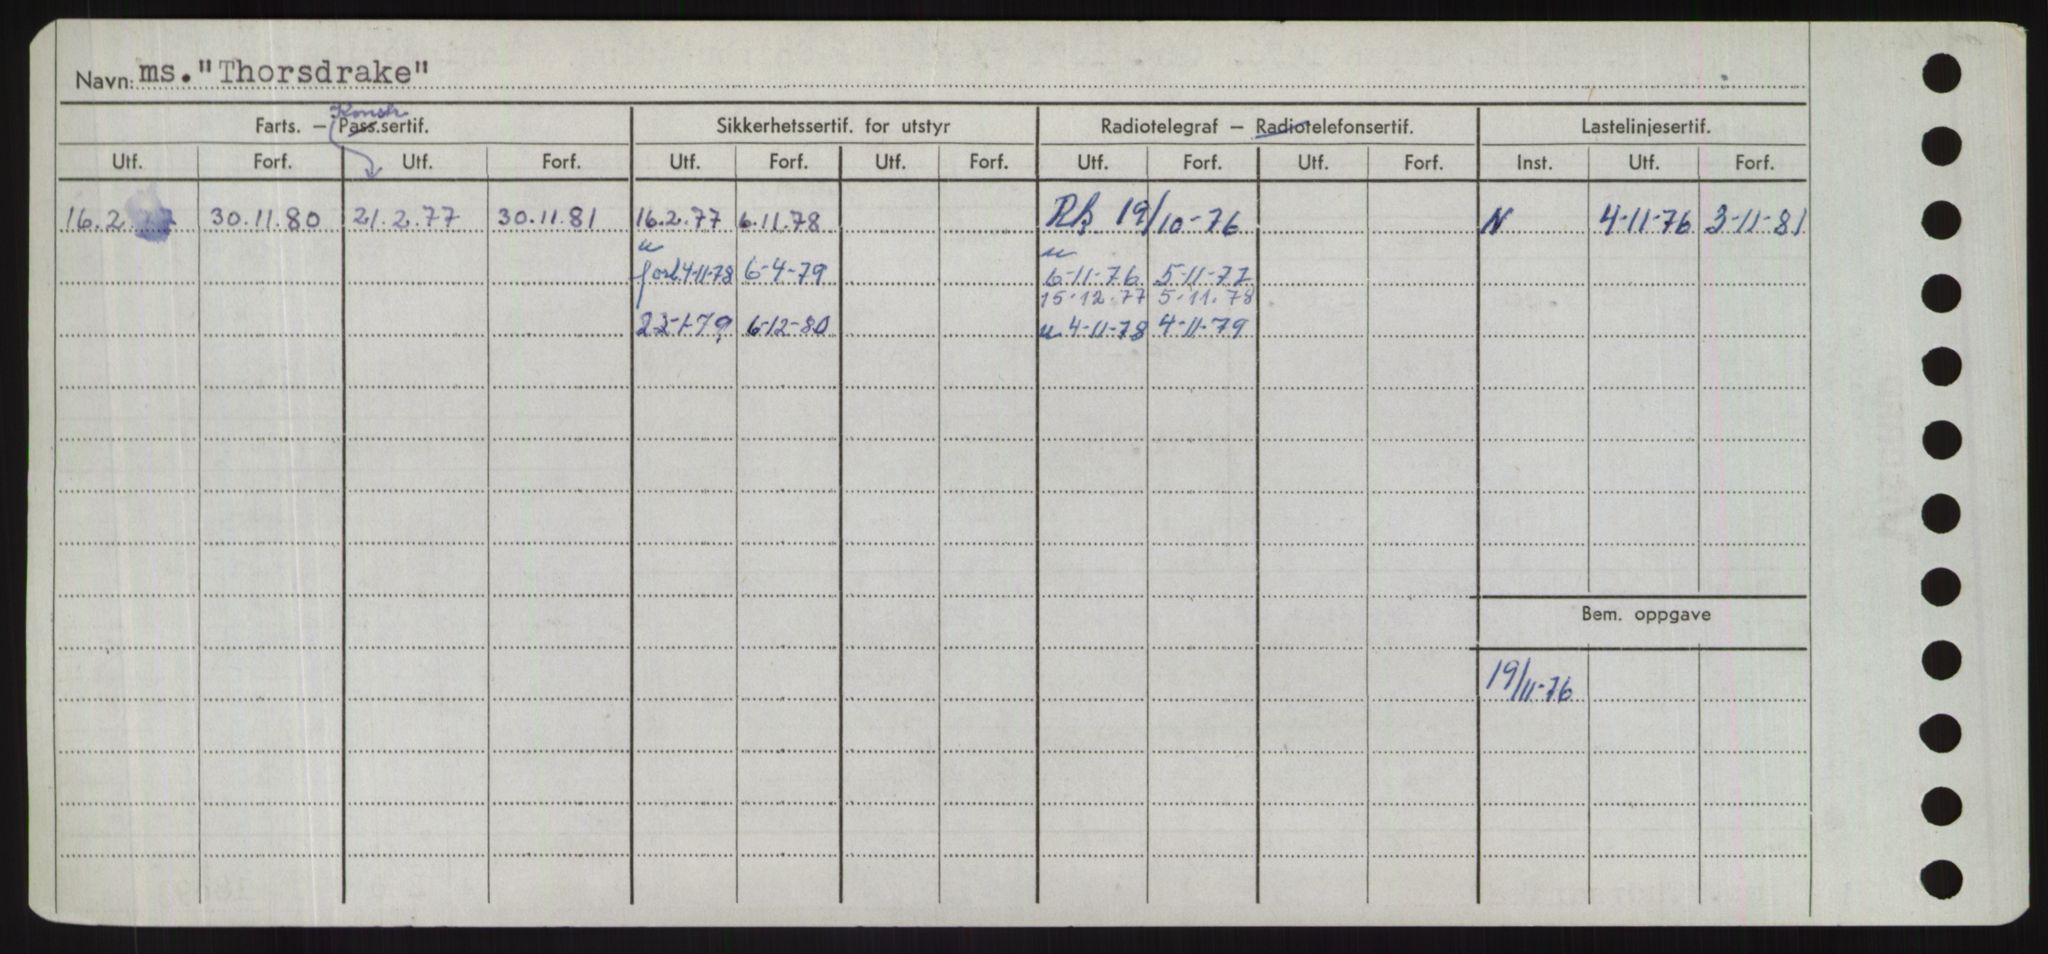 Navn: ms. "Thorsdrake"
Konstr.
Farts. — Pass.sertif. Sikkerhetssertif. for utstyr Radiotelegraf — Radiotelefonsertif. Lastelinjesertif.
Utf. Forf. Utf. Forf. Utf. Forf. Utf. Forf. Utf. Forf. Utf. Forf. Inst. Utf. Forf.
16.2.77 30.11.80 21.2.77 30.11.81 16.2.77 6.11.78 RB 19/10-76 N 4-11-76 3-11-81
u u
forl. 4-11-78 6-4-79 6-11-76 5-11-77
15.12.77 5.11.78
22-1-79 6-12-80 u 4-11-78 4-11-79
Bem. oppgave
19/11-76